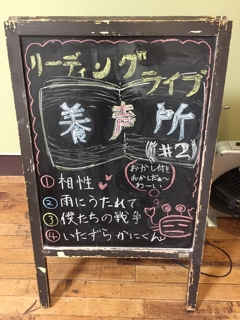 リーディング
ライブ
養声所
(#2)
おかし付と
おかしだぁ〜
わーい
① 相性
② 雨にうたれて
③ 僕たちの戦争
④ いたずらかにくん